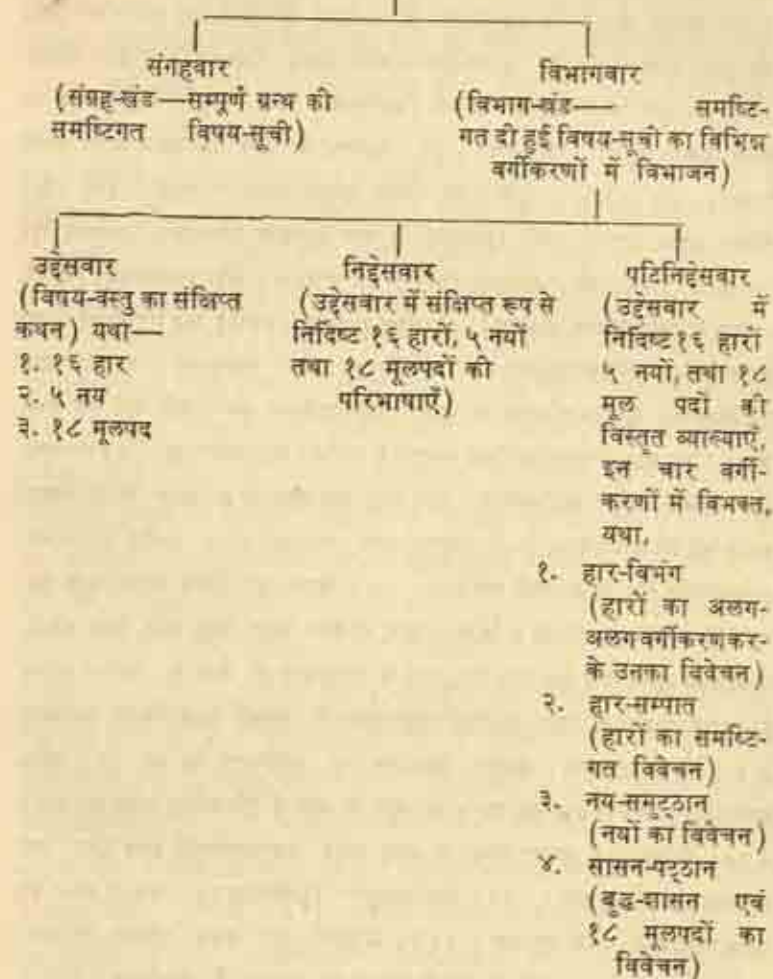 संगहवार
(संग्रह-खंड——सम्पूर्ण ग्रन्थ की
समष्टिगत विषय-सूची)
विभागवार
(विभाग-खंड—— समष्टि-
गत दी हुई विषय-सूची का विभिन्न
वर्गीकरणों में विभाजन)
उद्देसवार
(विषय-वस्तु का संक्षिप्त
कथन) यथा——
१. १६ हार
२. ५ नय
३. १८ मूलपद
निद्देसवार
(उद्देसवार में संक्षिप्त रूप से
निर्दिष्ट १६ हारों, ५ नयों
तथा १८ मूलपदों की
परिभाषाएँ)
पटिनिद्देसवार
(उद्देसवार में
निर्दिष्ट १६ हारों
५ नयों, तथा १८
मूल पदों की
विस्तृत व्याख्याएँ,
इन चार वर्गी-
करणों में विभक्त,
यथा,
१. हार-विभंग
(हारों का अलग-
अलग वर्गीकरण कर-
के उनका विवेचन)
२. हार-सम्पात
(हारों का समष्टि-
गत विवेचन)
३. नय-समुट्ठान
(नयों का विवेचन)
४. सासन-पट्ठान
(बुद्ध-शासन एवं
१८ मूलपदों का
विवेचन)